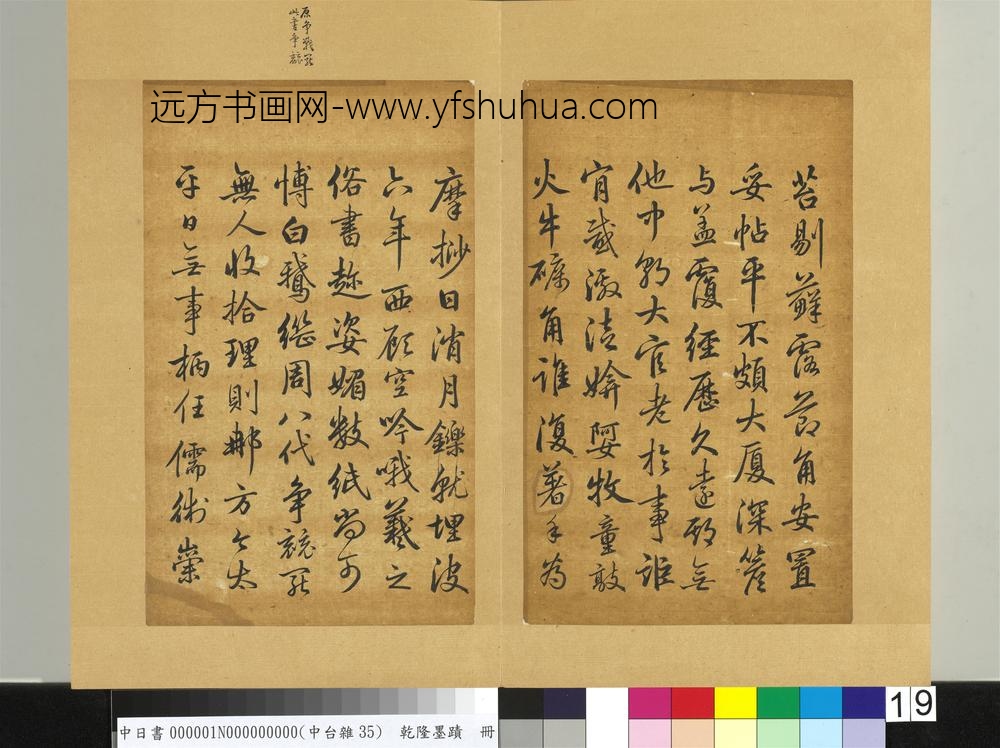 苔剔蘚露節角安置
妥帖平不頗大厦深簷
与盖覆經歷久遠期无
他中朝大官老於事詎
肯感激徒媕婀牧童敲
火牛礪角誰復著手為
摩挱日消月鑠就埋没
六年西顧空吟哦羲之
俗書趂姿媚数紙尚可
博白鵝繼周八代争競罷
無人收拾理則那方今太
平日无事柄任儒術崇
原争戰罷
此書争競
远方书画网-www.yfshuhua.com
中日書000001N000000000(中台雜35) 乾隆墨蹟 冊
19